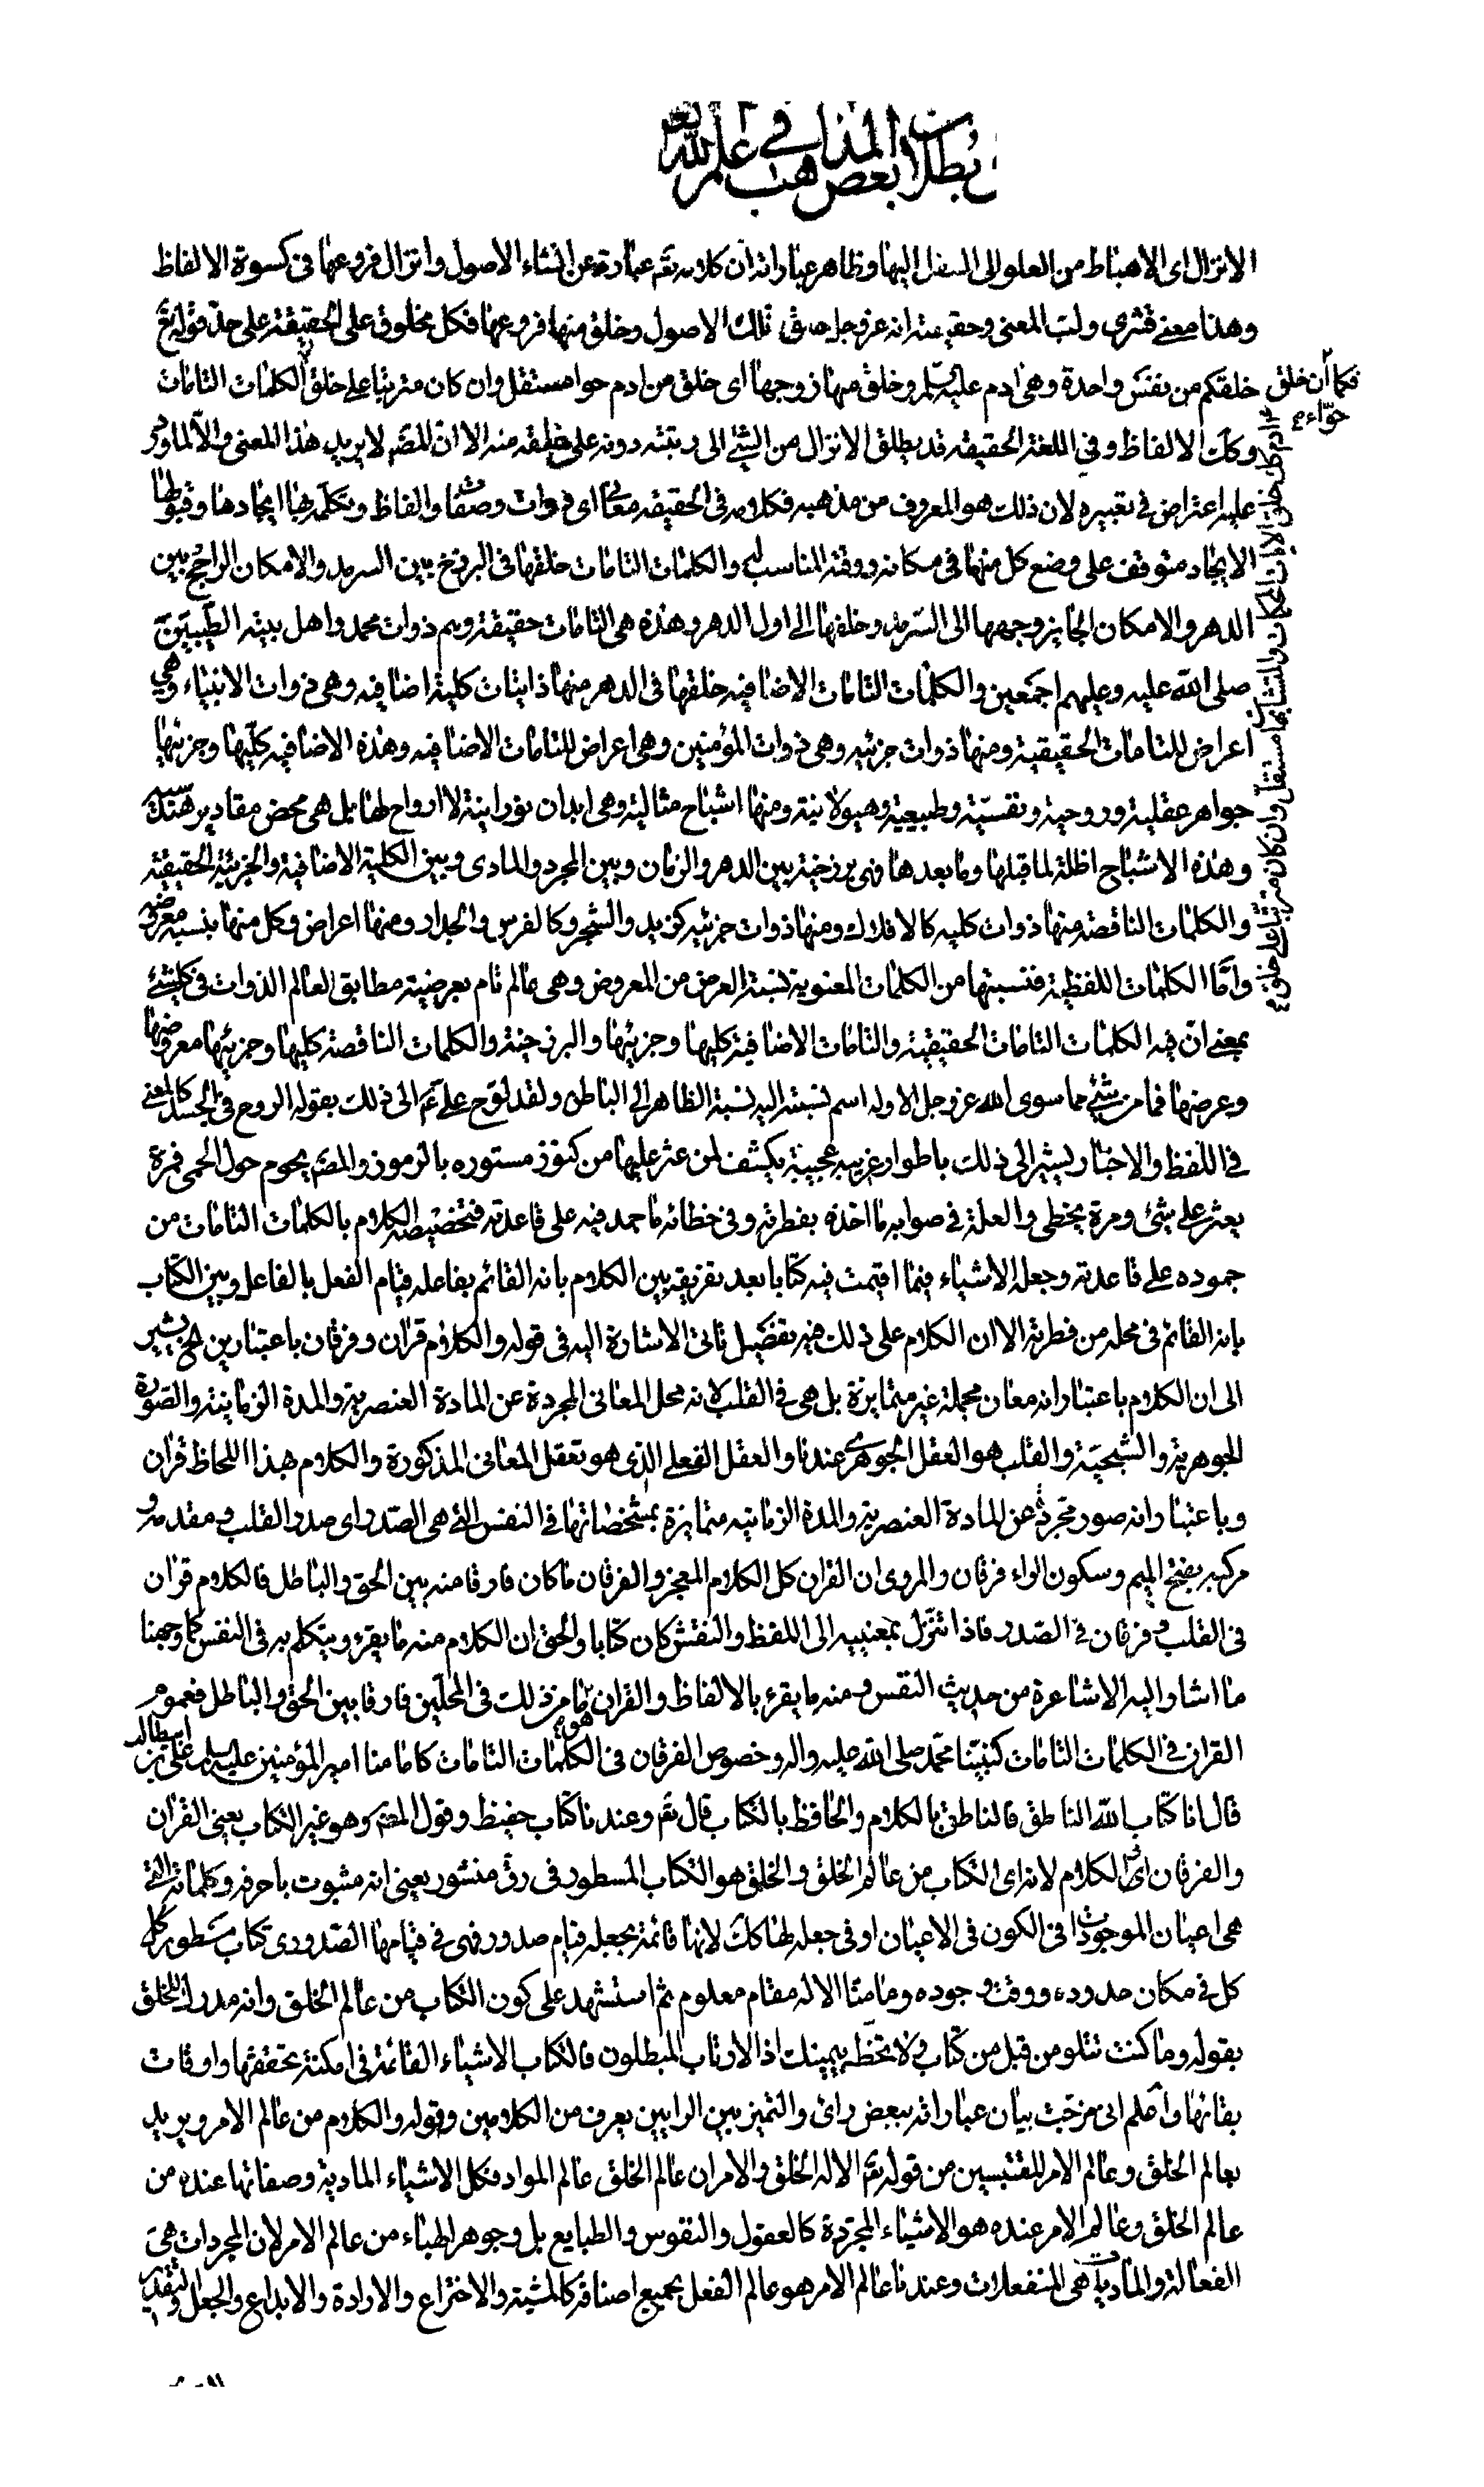 بطلان بعض المذاهب في علم الله
الانزال اى الاهباط من العلو الى السفل اليها وظاهر عباراته ان كلامه تعم عبارة عن انشاء الاصول وانزال فروعها فى كسوة الالفاظ
وهذا معنى قشرى ولب المعنى وحقيقته انه عز وجل خلق تلك الاصول وخلق منها فروعها فكل مخلوق على الحقيقة على حد قوله تع
خلقكم من نفس واحدة وهى ادم عليه السلم وخلق منها زوجها اى خلق من ادم حوا مستقل وان كان مترتبا على خلق الكلمات التامات
فكما أن خلق
حوّاء م
وكك الالفاظ وفى اللغة الحقيقة قد يطلق الانزال من الشئ الى رتبته دونه على خلقه منه الا ان المص لا يريد هذا المعنى والا لما ورد
عليه اعتراض فى تعبيره لان ذلك هو المعروف من مذهبه فكلامه فى الحقيقه معانى اى ذوات وصفات والفاظ وتكلمه بها ايجادها وقبولها
الايجاد متوقف على وضع كل منها فى مكانه ووقته المناسب له والكلمات التامات خلقها فى البرزخ بين السرمد والامكان الراجح بين
الدهر والامكان الجايز وجهها الى السرمد وخلفها الى اول الدهر وهذه هى التامات حقيقة وهم ذوات محمد واهل بيته الطيبين
صلى الله عليه وعليهم اجمعين والكلمات التامات الاضافيه خلقها فى الدهر منها ذاتيات كلية اضافيه وهى ذوات الانبياء وهي
اعراض للتامات الحقيقية ومنها ذوات جزئيه وهى ذوات المؤمنين وهى اعراض للتامات الاضافيه وهذه الاضافيه كليها وجزئيها
جواهر عقلية وروحية ونفسية وطبيعية وهيولانية ومنها اشباح مثالية وهى ابدان نورانية لا ارواح لها بل هى محض مقادير هندسية
وهذه الاشباح اظلة لما قبلها وما بعدها فهى برزخية بين الدهر والزمان وبين المجرد والمادى وبين الكلية الاضافية والجزئية الحقيقية
والكلمات الناقصة منها ذوات كليه كالافلاك ومنها ذوات جزئيه كزيد والشجر وكالفرس والجدار ومنها اعراض وكل منها بنسبه معروضه
واما الكلمات اللفظية فنسبتها من الكلمات المعنوية نسبة العرض من المعروض وهى عالم تام بعرضيته مطابق لعالم الذوات فى كل شئ
بمعنى ان فيه الكلمات التامات الحقيقية والتامات الاضافية كليها وجزئيها والبرزخية والكلمات الناقصة كليها وجزئيها معروضها
وعرضها فما من شئ مما سوى الله عز وجل الا وله اسم نسبته اليه نسبة الظاهر الى الباطن ولقد لوح على ع الى ذلك بقوله الروح فى الجسد كالمعنى
فى اللفظ والاخبار يشير الى ذلك باطوار غريبه عجيبة يكشف لمن عثر عليها من كنوز مستوره بالرموز والمص يحوم حول الحمى فمرة
يعثر على شئ ومرة يخطى والعلة فى صوابه ما اخذه بفطرته وفى خطائه ما جمد فيه على قاعدته فتخصيصه الكلام بالكلمات التامات من
جموده على قاعدته وجعله الاشياء فيما اقيمت فيه كتابا بعد تفريقه بين الكلام بانه القائم بفاعله قيام الفعل بالفاعل وبين الكتاب
بانه القائم فى محله من فطرته الا ان الكلام على ذلك فيه تفصيل تاتى الاشارة اليه فى قوله والكلام قران وفرقان باعتبارين الخ يشير
الى ان الكلام باعتبار انه معان مجملة غير متمايزة بل هى فى القلب لانه محل المعانى المجردة عن المادة العنصرية والمدة الزمانية والصورة
الجوهرية والشبحية والقلب هو العقل الجوهرى عندنا والعقل الفعلى الذى هو تعقل المعانى المذكورة والكلام بهذا اللحاظ قران
وباعتبار انه صور مجردة عن المادة العنصرية والمدة الزمانيه متمايزة بمشخصاتها فى النفس التى هى الصدر اى صدر القلب ومقدمه و
مركبه بفتح الميم وسكون الراء فرقان والمروى ان القران كل الكلام المعجز والفرقان ما كان فارقا منه بين الحق والباطل فالكلام قران
فى القلب وفرقان فى الصدر فاذا تنزل بمعنييه الى اللفظ والنقش كان كتابا والحق ان الكلام منه ما يقرء ويتكلم به فى النفس كما وجهنا
ما اشار اليه الاشاعرة من حديث النفس ومنه ما يقرء بالالفاظ والقران ما من ذلك فى المحلين فارقا بين الحق والباطل فعموم
القران فى الكلمات التامات كنبينا محمد صلى الله عليه واله وخصوص الفرقان فى الكلمات التامات كامامنا امير المؤمنين عليه السلم على بن ابيطالب
قال انا كتاب الله الناطق فالناطق بالكلام والحافظ بالكتاب قال تعم وعندنا كتاب حفيظ وقول المص وهو غير الكتاب يعنى القران
والفرقان اى الكلام لانه اى الكتاب من عالم الخلق والخلق هو الكتاب المسطور فى رق منشور يعنى انه مثبوت باحرفه وكلماته التى
هى اعيان الموجودات فى الكون فى الاعيان او فى جعله لها كك لانها قائمة بجعله قيام صدور فهى فى قيامها الصدورى كتاب مسطور كل
كل فى مكان حدوده ووقت وجوده وما منا الا له مقام معلوم ثم استشهد على كون الكتاب من عالم الخلق وانه مدرك للخلق
بقوله وما كنت تتلو من قبله من كتاب ولا تخطه بيمينك اذا لارتاب المبطلون فالكتاب الاشياء القائمة فى امكنة تحققها واوقات
بقائها واعلم انى مزجت بيان عباراته ببعض راى والتميز بين الرايين يعرف من الكلامين وقوله والكلام من عالم الامر ويريد
بعالم الخلق وعالم الامر المقتبسين من قوله تعم الا له الخلق والامر ان عالم الخلق عالم المواد فكل الاشياء المادية وصفاتها عنده من
عالم الخلق وعالم الامر عنده هو الاشياء المجردة كالعقول والنفوس والطبايع بل وجوهر الهباء من عالم الامر لان المجردات هى
الفعالة والماديات هى المنفعلات وعندنا عالم الامر هو عالم الفعل بجميع اصنافه كالمشية والاختراع والارادة والابداع والجعل والتقدير